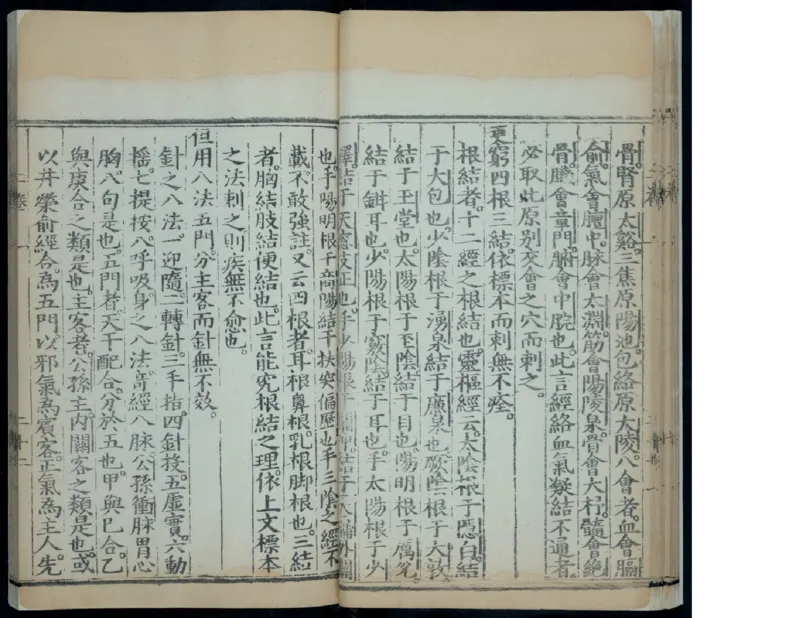 骨。腎原太谿。三焦原陽池。包絡原大陵。八會者。血會膈
俞。氣會膻中。脉會太淵。筋會陽陵泉。骨會大杼。髓會絶
骨。臟會章門。腑會中脘也。此言經絡血氣凝結不通者。
必取此原别交會之穴而刺之。
更窮四根三結。依標本而刺無不痊。
根結者。十二經之根結也。靈樞經云。太陰根于隱白。結
于大包也。少陰根于湧泉。結于廉泉也。厥陰根于大敦。
結于玉堂也。太陽根于至陰。結于目也。陽明根于厲兌。
結于鉗耳也。少陽根于竅陰。結于耳也。手太陽根于少
澤。結于天窓支正也。手少陽根于關冲。結于天牖外關
也。手陽明根于商陽。結于扶突偏歷也。手三陰之經不
載。不敢強註。又云四根者。耳根鼻根。乳根脚根也。三結
者。胸結肢結便結也。此言能究根結之理。依上文標本
之法刺之。則疾無不愈也。
但用八法五門。分主客而針無不效。
針之八法。一迎隨。二轉針。三手指。四針投。五虛實。六動
揺。七提按。八呼吸。身之八法。竒經八脉。公孫衝脉胃心
胸。八句是也。五門者。天干配合。分於五也。甲與巳合。乙
與庚合之類是也。主客者。公孫主。内關客之類是也。或
以井榮俞經合。為五門。以邪氣為賓客。正氣為主人。先